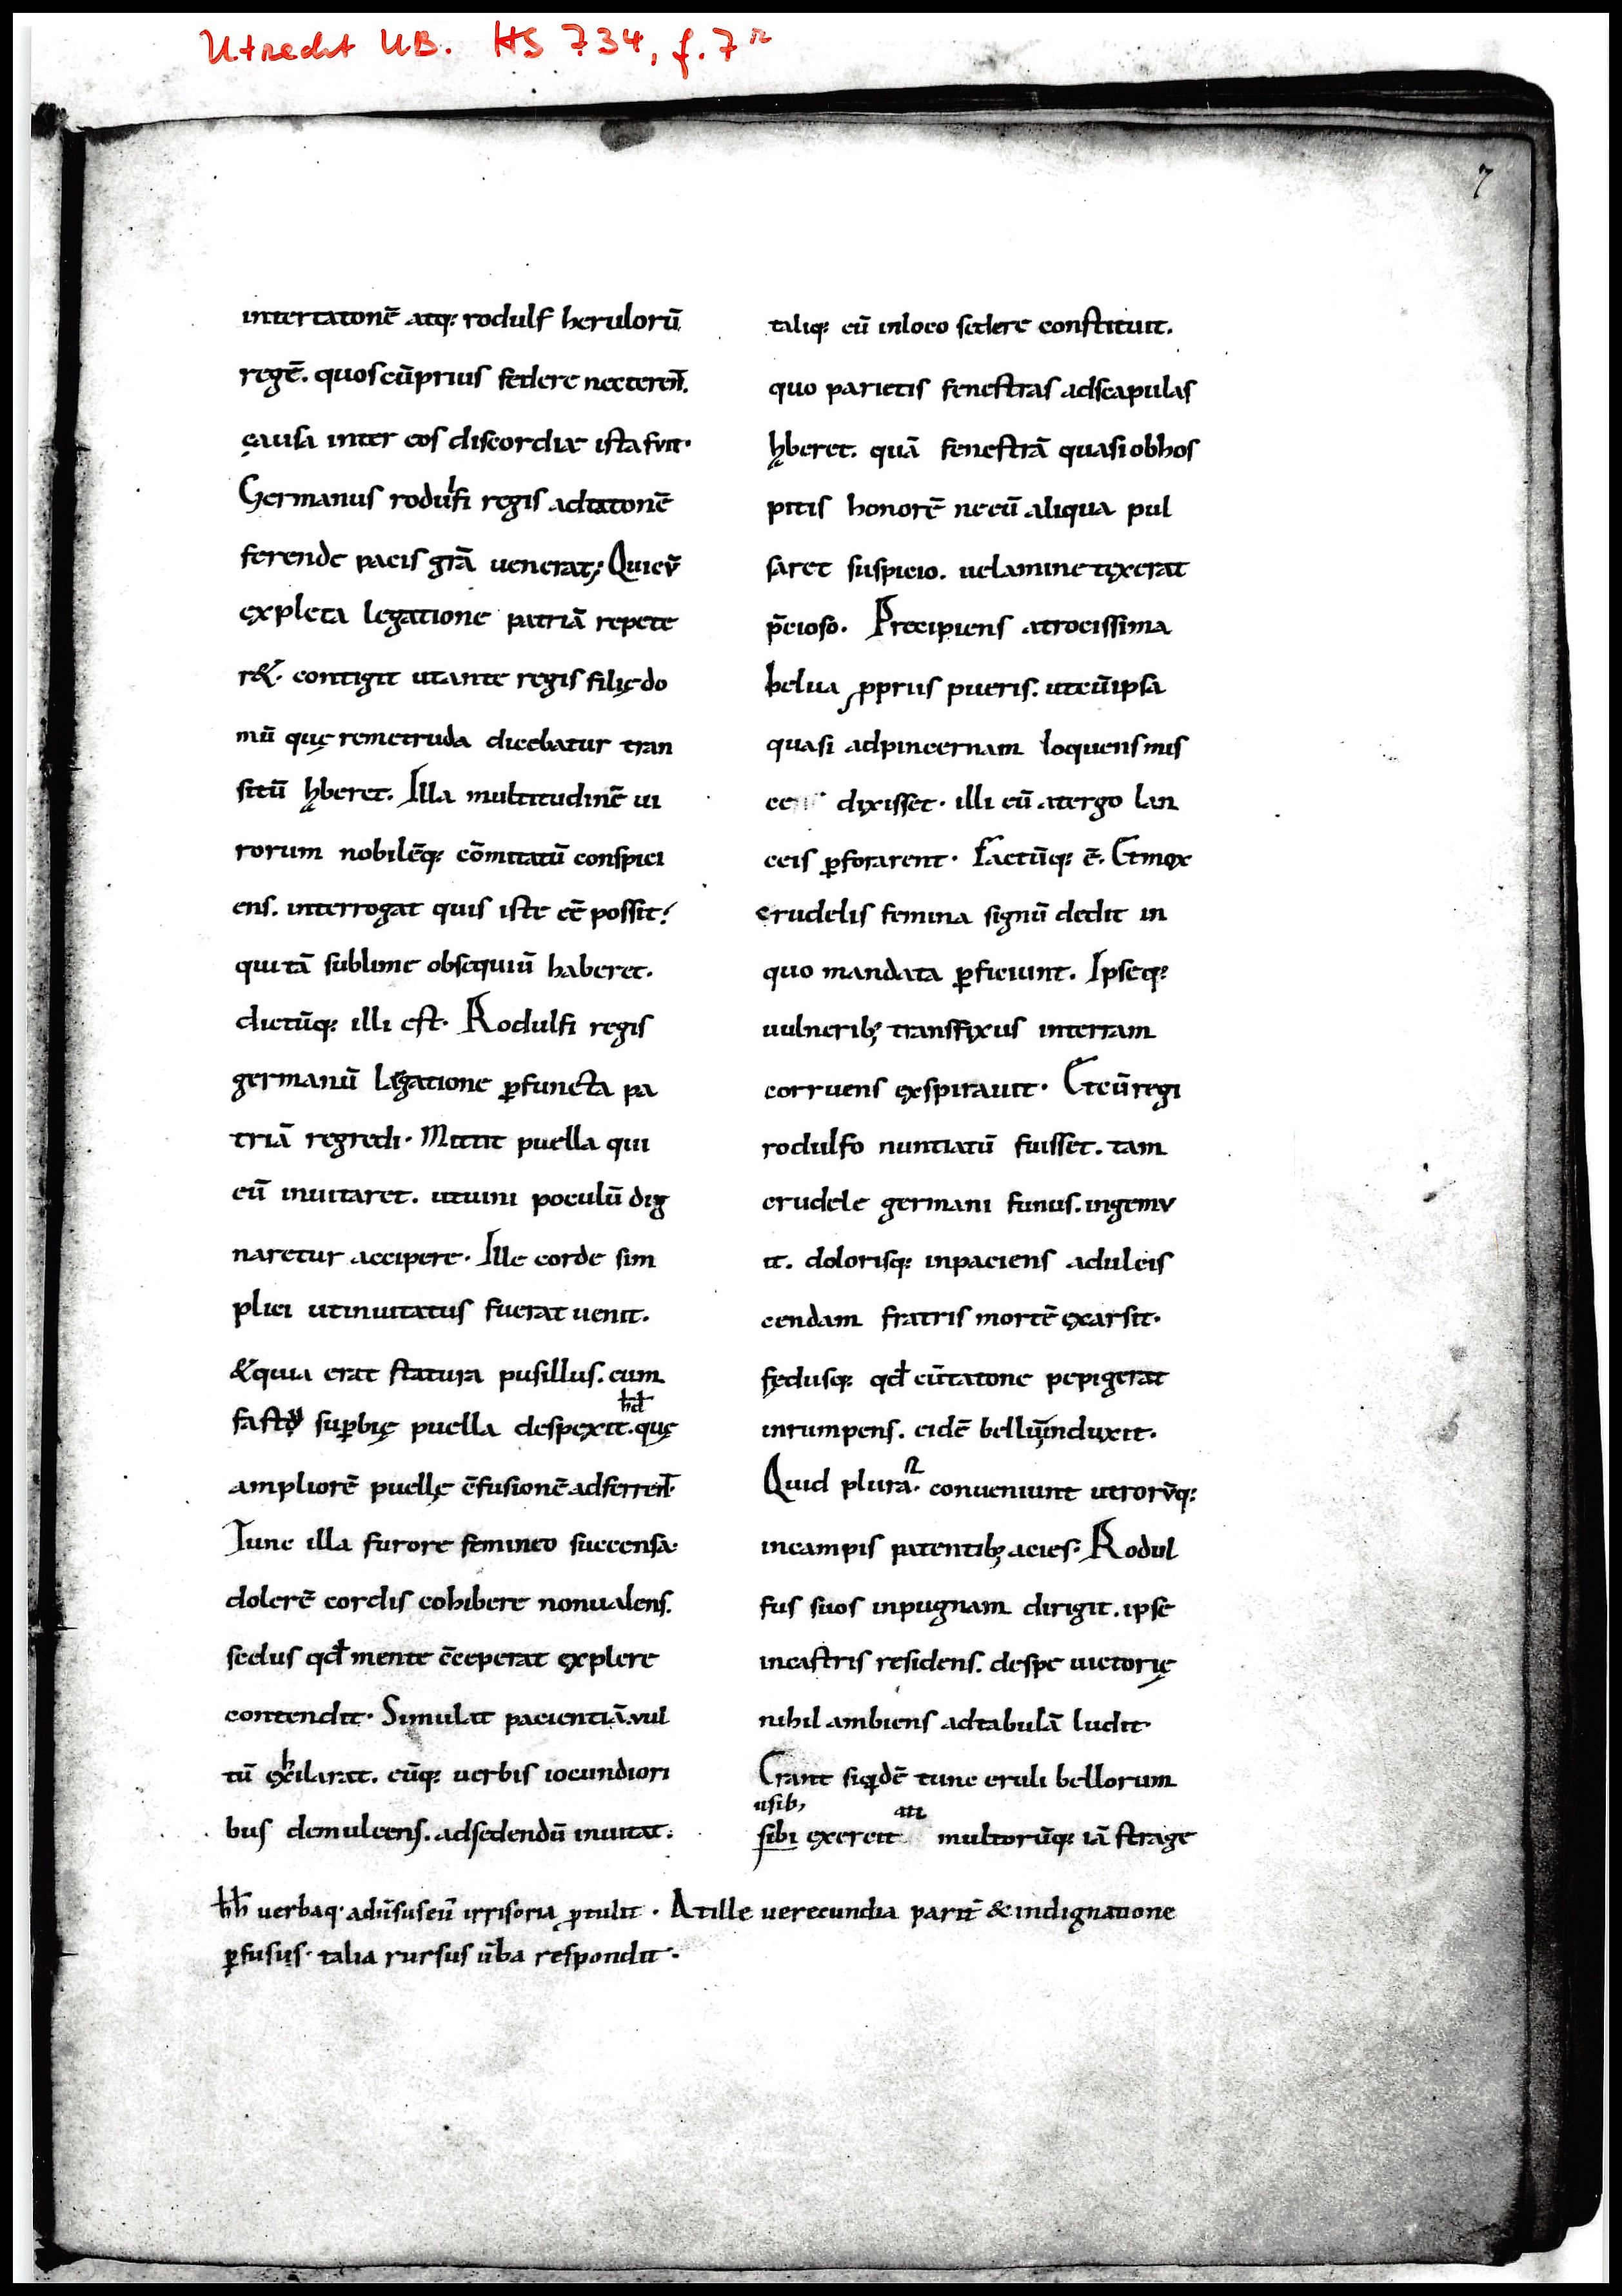 Utrecht UB. HS 734, f. 7r
7
intertatonē atq: rodulf herulorū
regē. quos cū prius federe necteren̄t.
causa inter eos discordiæ ista fuit·
Germanus rodulfi regis ad tatonē
ferende pacis grā uenerat; Qui cū
expleta legatione patriā repete
r&. contigit ut ante regis filię do
mū quę remetruda dicebatur tran
sitū hberet. Illa multitudinē ui
rorum nobilēq: cōmitatū conspici
ens. interrogat quis iste eē possit?
qui tā sublime obsequiū haberet.
dictūq: illi est· Rodulfi regis
germanū legatione ꝑfuncta pa
triā regredi· Mittit puella qui
eū inuitaret. ut uini poculū dig
naretur accipere· Ille corde sim
plici ut inuitatus fuerat uenit.
& quia erat statura pusillus. eum
h̄d
fastu suꝑbię puella despexit. quę
ampliorē puellę c̄fusionē adferren̄t·
Tunc illa furore femineo succensa·
dolerē cordis cohibere non ualens.
scelus qđ mente c̄ceperat explere
contendit· Simulat pacientiā. uul
tū exhilarat. eūq: uerbis iocundiori
bus demulcens. ad sedendū inuitat.
taliq: eū in loco sedere constituit.
quo parietis fenestras ad scapulas
hberet. quā fenestrā quasi ob hos
pitis honorē ne eū aliqua pul
saret suspicio. uelamine texerat
p̄cioso· Precipiens atrocissima
belua ꝓpriis pueris. ut cū ipsa
quasi ad pincernam loquens mis
ce dixisset· illi eū a tergo lan
ceis ꝑforarent· Factūq: ē. Et mox
crudelis femina signū dedit in
quo mandata ꝑficiunt. Ipseq:
uulnerib; transfixus in terram
corruens exspirauit· Et cū regi
rodulfo nuntiatū fuisset. tam
crudele germani funus. ingemu
it. dolorisq: inpaciens ad ulcis
cendam fratris mortē exarsit·
fędusq: qđ cū tatone pepigerat
inrumpens. eidē bellū induxit·
Quid plura· conueniunt utrorūq:
in campis patentib; acies· Rodul
fus suos in pugnam dirigit. ipse
in castris residens. de spe uictorię
nihil ambiens ad tabulā ludit·
Erant siqdē tunc eruli bellorum
usib; ati
sibi exercit multorūq: iā strage
h̄h̄ uerbaq· aduīsus eū irrisoria ꝓtulit· At ille uerecundia parit̄ & indignatione
ꝑfusus· talia rursus ūba respondit·